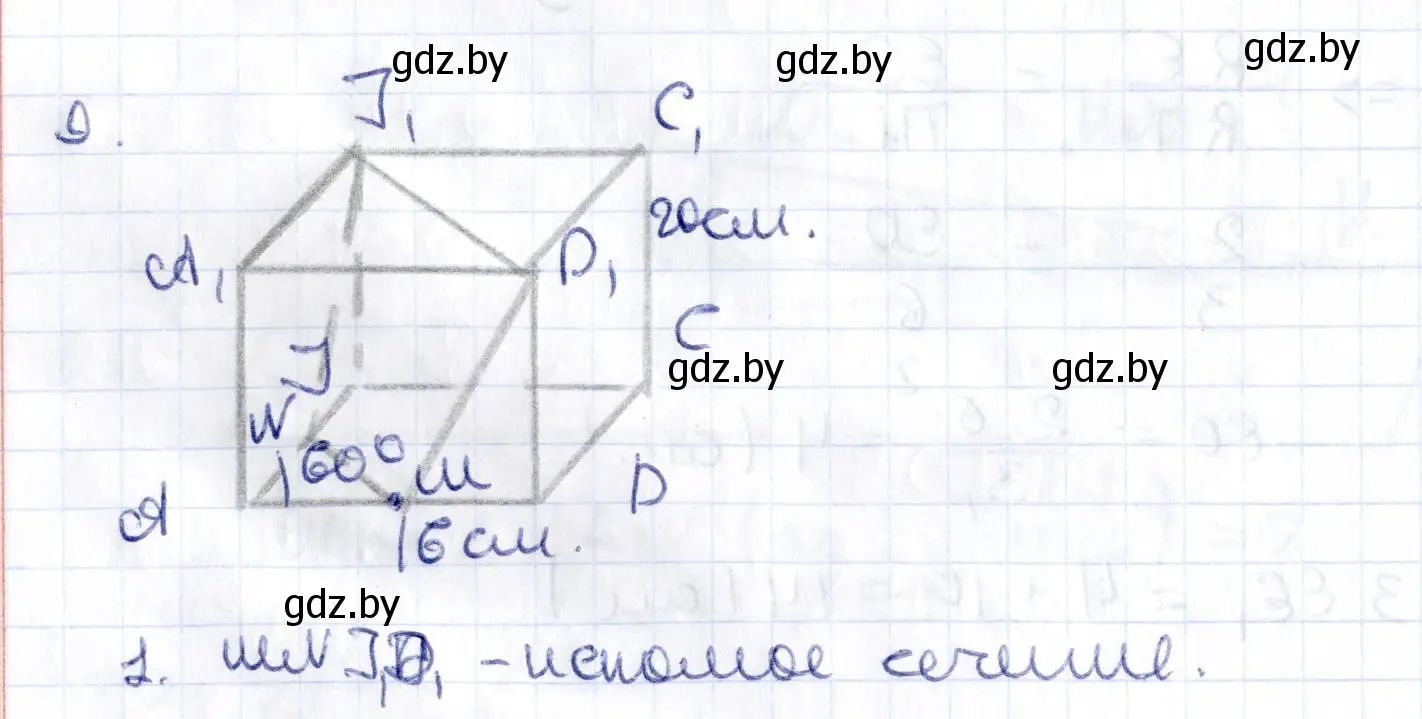 gdz.by gdz.by gdz.by
9.
J₁ C₁
20см.
A₁ D₁
C
J
gdz.by gdz.by
N
60° M
A D
16см.
gdz.by
1. MNJ₁D₁ - искомое сечение.